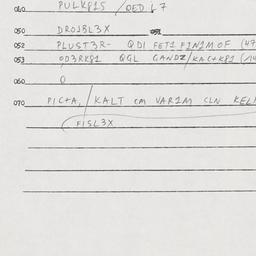 040 PULK815 / OED 67
050 DROJBL3X 051
052 PLUST3R- QDI FET1 FIN1MOF (47
053 OD3RK81 QGL GANDZ/KACXK81 (14
060 O
070 PICTA, / KALT CM VAR1M CLN KEL
FISL3X